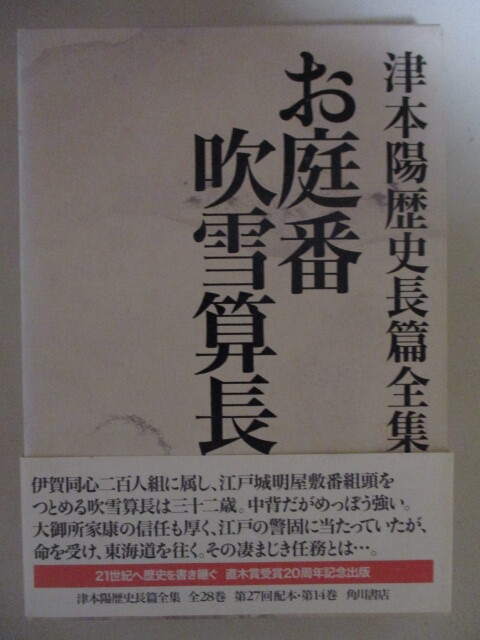 津本陽歴史長篇全集
お庭番
吹雪算長
伊賀同心二百人組に属し、江戸城明屋敷番組頭を
つとめる吹雪算長は三十二歳。中背だがめっぽう強い。
大御所家康の信任も厚く、江戸の警固に当たっていたが、
命を受け、東海道を往く。その凄まじき任務とは…。
21世紀へ歴史を書き継ぐ 直木賞受賞20周年記念出版
津本陽歴史長篇全集 全28巻 第27回配本・第14巻 角川書店